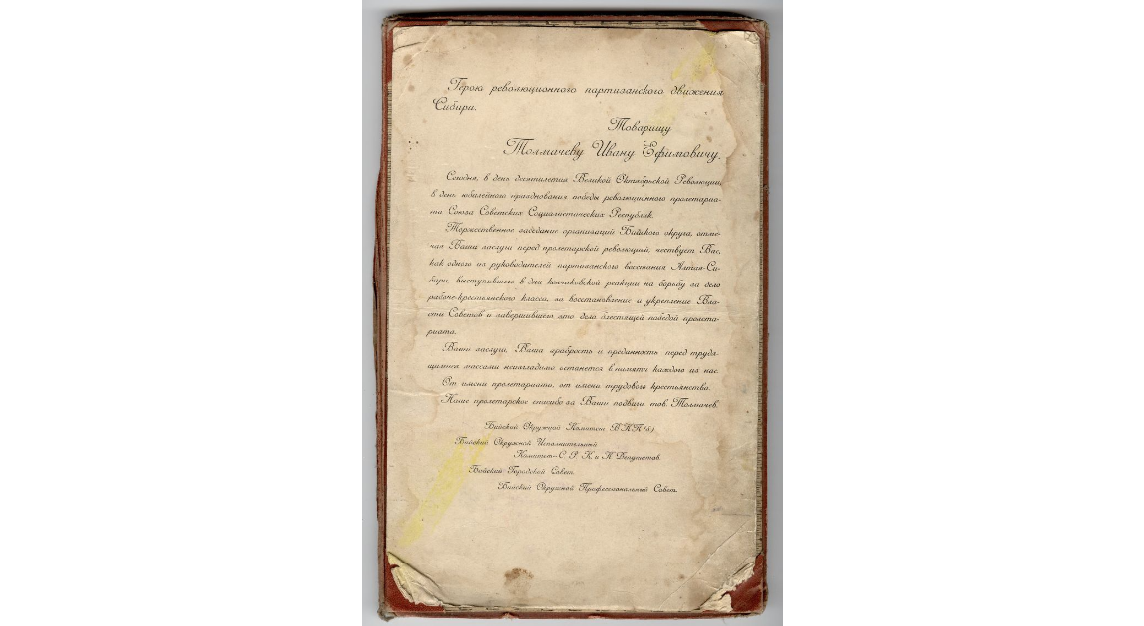 Герою революционного партизанского движения
Сибири.
Товарищу
Толмачеву Ивану Ефимовичу.
Сегодня, в день десятилетия Великой Октябрьской Революции,
в день юбилейного празднования победы революционного пролетариа-
та Союза Советских Социалистических Республик.
Торжественное заседание организаций Бийского округа, отме-
чая Ваши заслуги перед пролетарской революцией, чествует Вас,
как одного из руководителей партизанского восстания Алтая-Си-
бири, выступившего в дни колчаковской реакции на борьбу за дело
рабоче-крестьянского класса, за восстановление и укрепление Вла-
сти Советов и завершившего это дело блестящей победой пролета-
риата.
Ваши заслуги, Ваша храбрость и преданность перед трудя-
щимися массами неизгладимо останется в памяти каждого из нас.
От имени пролетариата, от имени трудового крестьянства.
Наше пролетарское спасибо за Ваши подвиги тов. Толмачев.
Бийский Окружной Комитет ВКП(б).
Бийский Окружной Исполнительный
Комитет—С. Р. К. и К. Депутатов.
Бийский Городской Совет.
Бийский Окружной Профессиональный Совет.